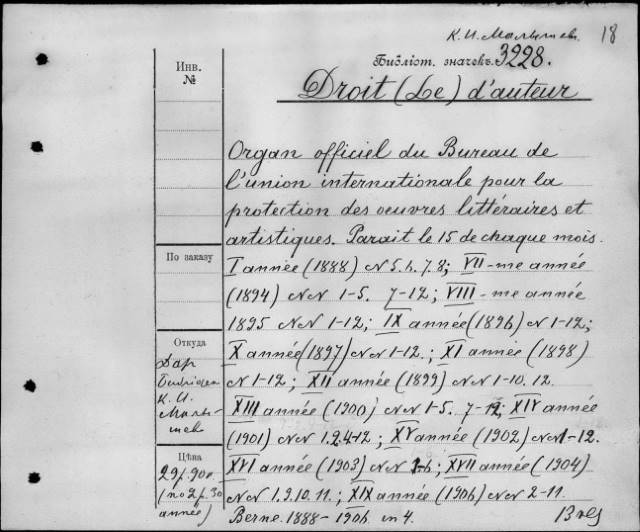 К. И. Малышев. 18
Библіот. значекъ 3228.
Инв.
№
Droit (Le) d'auteur
Organ officiel du Bureau de
l'union internationale pour la
protection des oeuvres littéraires et
artistiques. Parait le 15 de chaque mois.
По заказу
I année (1888) N 5. 6. 7. 8; VII-me année
(1894) NN 1-5. 7-12; VIII-me année
1895 NN 1-12; IX année (1896) N 1-12;
Откуда
Дар
К. И.
Малы-
шев
X année (1897) NN 1-12.; XI année (1898)
N 1-12; XII année (1899) NN 1-10. 12.
XIII année (1900) NN 1-5. 7-12; XIV année
(1901) NN 1.2.4-12; XV année (1902) NN 1-12.
Цѣна
29 р. 90 к.
(по 2 р. 30
année)
XVI année (1903) NN 1-6; XVII année (1904)
NN 1.9.10.11.; XIX année (1906) NN 2-11.
Berne. 1888-1906. in 4.